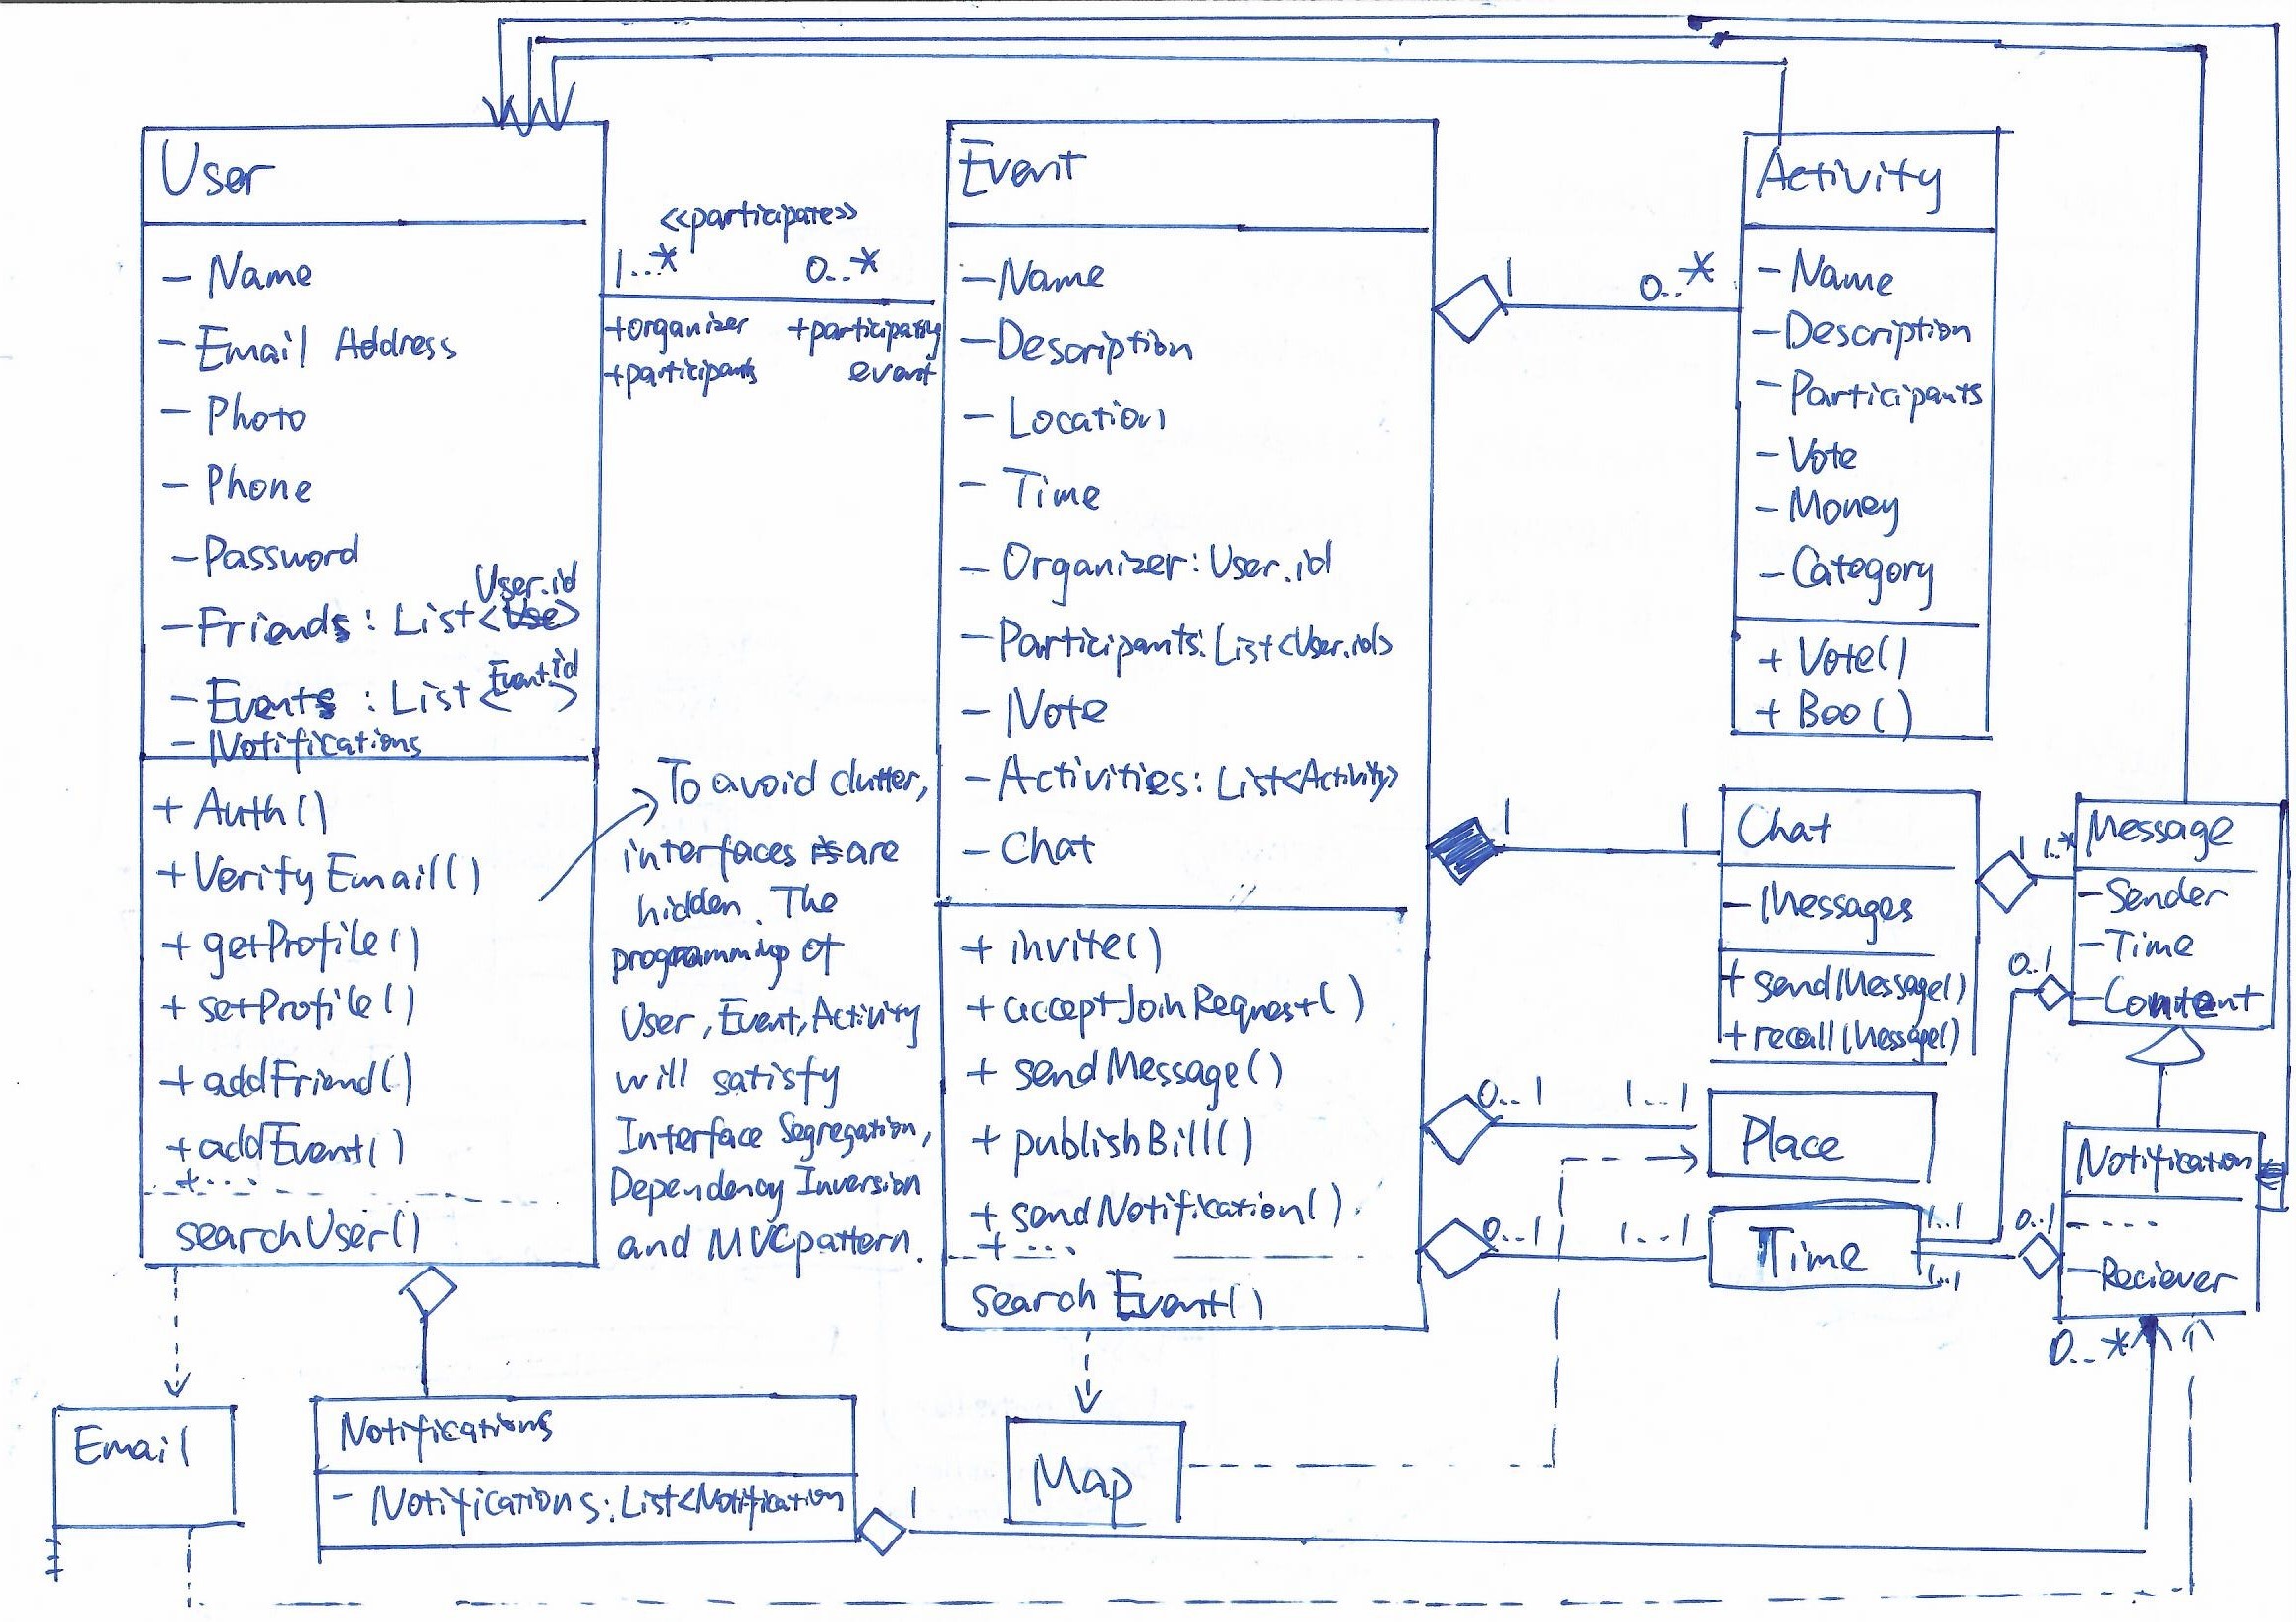 User
- Name
- Email Address
- Photo
- Phone
- Password
User.id
- Friends : List<Use>
Event.id
- Events : List< >
- Notifications
+ Auth()
+ Verify Email()
+ getProfile()
+ setProfile()
+ addFriend()
+ addEvent()
+ ...
searchUser()
<<participate>>
1...*
0...*
+organizer
+participants
+participating
event
To avoid clutter,
interfaces are
hidden. The
programming of
User, Event, Activity
will satisfy
Interface Segregation,
Dependency Inversion
and MVC pattern.
Event
- Name
- Description
- Location
- Time
- Organizer: User.id
- Participants: List<User.id>
- Note
- Activities: List<Activity>
- Chat
+ invite()
+ acceptJoinRequest()
+ sendMessage()
+ publishBill()
+ sendNotification()
+ ...
search Event()
1
0..*
Activity
- Name
- Description
- Participants
- Vote
- Money
- Category
+ Vote()
+ Boo()
1
1
Chat
- Messages
+ sendMessage()
+ recallMessage()
1
1..*
Message
- Sender
- Time
- Content
0..1
0...1
1...1
Place
0...1
1...1
Time
1...1
1...1
0..1
Notification
- - - -
- Reciever
0...*
Email
Notifications
- Notifications: List<Notification
1
Map